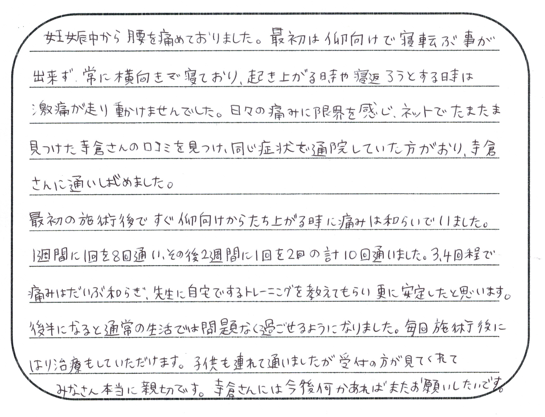 妊娠中から腰を痛めておりました。最初は仰向けで寝転ぶ事が
出来ず、常に横向きで寝ており、起き上がる時や寝返ろうとする時は
激痛が走り動けませんでした。日々の痛みに限界を感じ、ネットでたまたま
見つけた寺倉さんの口コミを見つけ、同じ症状で通院していた方がおり、寺倉
さんに通いし始めました。
最初の施術後ですぐ仰向けからたち上がる時に痛みは和らいでいました。
1週間に1回を8回通い、その後2週間に1回を2回の計10回通いました。3,4回程で
痛みはだいぶ和らぎ、先生に自宅でするトレーニングを教えてもらい更に安定したと思います。
後半になると通常の生活では問題なく過ごせるようになりました。毎回施術後に
はり治療もしていただけます。子供も連れて通いましたが受付の方が見てくれて
みなさん本当に親切です。寺倉さんには今後何かあればまたお願いしたいです。